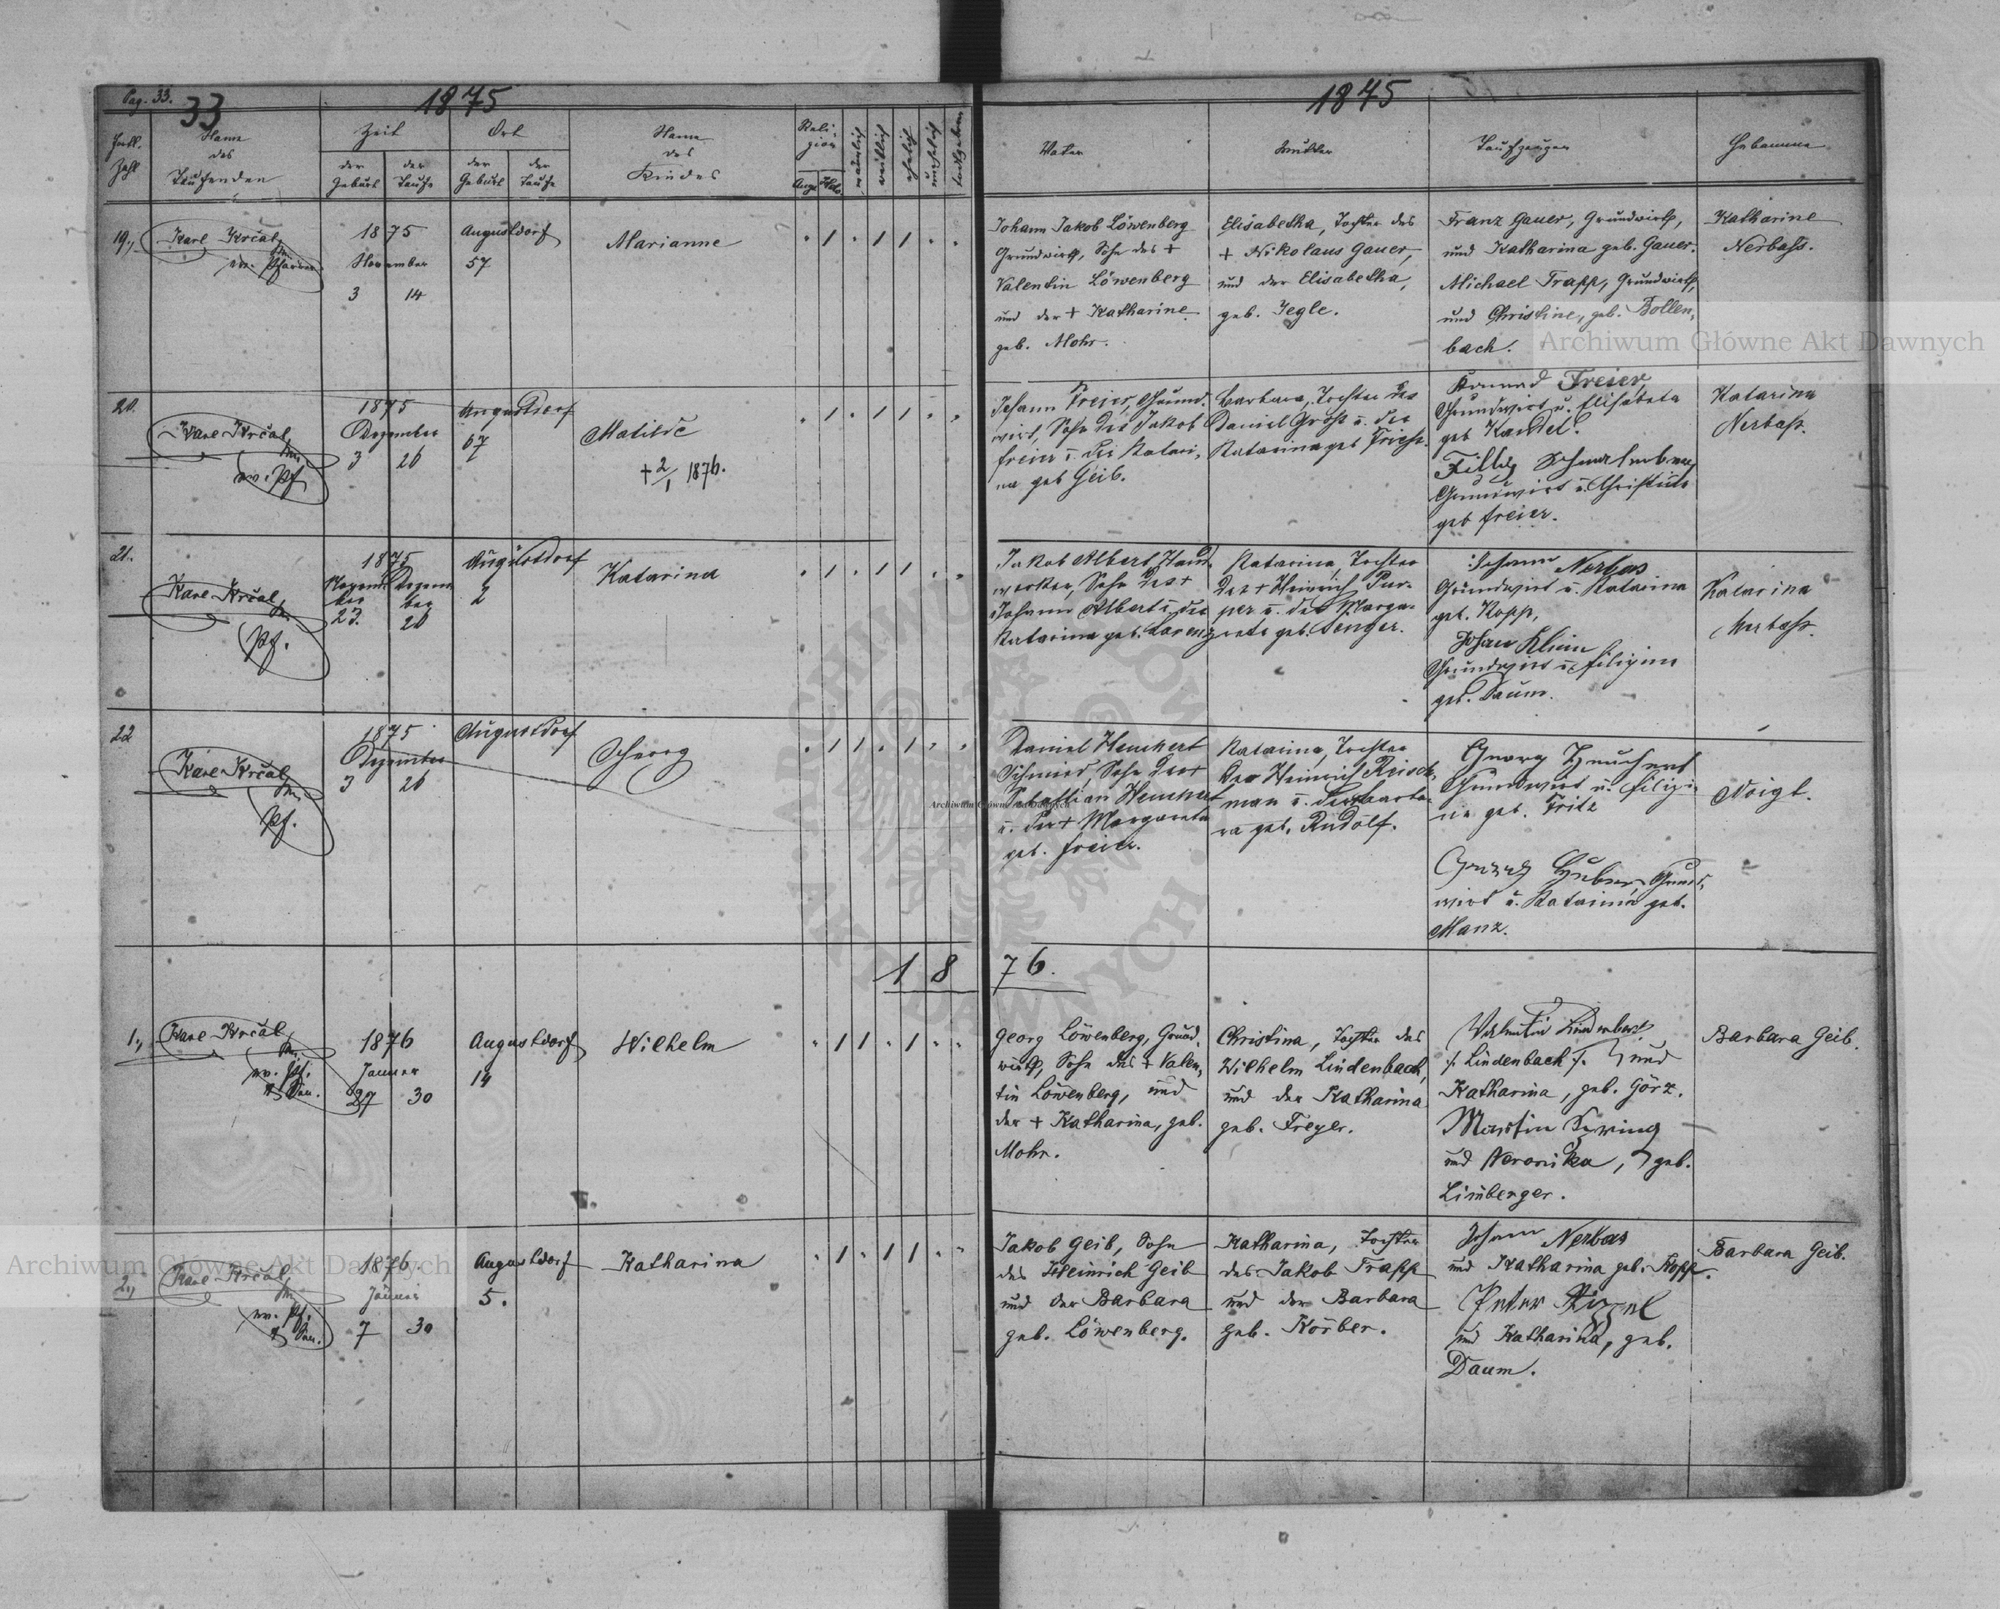 Pag. 33.
33
1875
1875
Fortl. Zahl
Name des Taufenden
Zeit
der Geburt
der Taufe
Ort
der Geburt
der Taufe
Name des Kindes
Religion
Augs. Helv.
männlich
weiblich
ehelich
unehelich
todtgeboren
Vater
Mutter
Taufzeugen
Hebamme
19.,
Karl Krčal,
ev. Pfarrer
1875
November
3 14
Augustdorf
57
Marianne
Johann Jakob Löwenberg
Grundwirth, Sohn des +
Valentin Löwenberg
und der + Katharine
geb. Mohr.
Elisabetha, Tochter des
+ Nikolaus Gauer,
und der Elisabetha,
geb. Jegle.
Franz Gauer, Grundwirth,
und Katharina geb. Gauer.
Michael Trapp, Grundwirth,
und Christine, geb. Bollen,
bach.
Katharine
Nerbaß.
20.
Karl Krčal,
ev. Pf.
1875
Dezember
3 26
Augustdorf
67
Matilde
+ 2/1 1876.
Johann Freier, Grund,
wirt, Sohn des Jakob
Freier u. der Katari,
na geb Geib.
Barbara, Tochter des
Daniel Groß u. der
Katarina geb
Konrad Freier,
Grundwirt u. Elisabeta
geb Kandel.
Grundwirt u. Christine
geb Freier.
Katarina
Nerbaß.
21.
Karl Krčal,
Pf.
1875
Novem Dezem
ber ber
23. 26
Augustdorf
2
Katarina
Jakob Albert, Hand,
werker, Sohn des +
Johann Albert u. der
Katarina geb. Lorenz
Katarina, Tochter
des + Heinrich Pur-
per u. der Marga-
reta geb. Senger.
Johann Nerbas
Grundwirt u. Katarina
geb. Kopp,
Johan Klein
Grundwirt u. Filipine
geb. Daum.
Katarina
Nerbaß.
22
Karl Krčal,
Pf.
1875
Dezember
3 26
Augustdorf
Georg
Daniel Heuchert
Schmied, Sohn des +
Sebastian Heuchert
u. der + Margareta
geb. Freier.
Katarina, Tochter
des Heinrich Reisch,
man u. der Barba-
ra geb. Rudolf.
Georg Heuchert
Grundwirt u. Filipi-
ne geb. Fritz
Georg Huber, Grund,
wirt u. Katarina geb.
Manz.
Voigt.
1876.
1.,
Karl Krčal,
ev. Pf.
& Sen.
1876
Jänner
27 30
Augustdorf
14
Wilhelm
Georg Löwenberg, Grund,
wirth, Sohn des + Valen,
tin Löwenberg, und
der + Katharina, geb.
Mohr.
Christina, Tochter des
Wilhelm Lindenbach,
und der Katharina
geb. Freyer.
Valentin Lindenbach
/: Lindenbach :/ und
Katharina, geb. Görz.
Martin Spring
und Veronika, geb.
Limberger.
Barbara Geib.
2.,
Karl Krčal,
ev. Pf.
& Sen.
1876
Jänner
7 30
Augustdorf
5.
Katharina
Jakob Geib, Sohn
des Heinrich Geib
und der Barbara
geb. Löwenberg.
Katharina, Tochter
des Jakob Trapp
und der Barbara
geb. Körber.
Johann Nerbas
und Katharina geb. Kopp.
Peter
und Katharina, geb.
Daum.
Barbara Geib.
Archiwum Główne Akt Dawnych
Archiwum Główne Akt Dawnych
Archiwum Główne Akt Dawnych